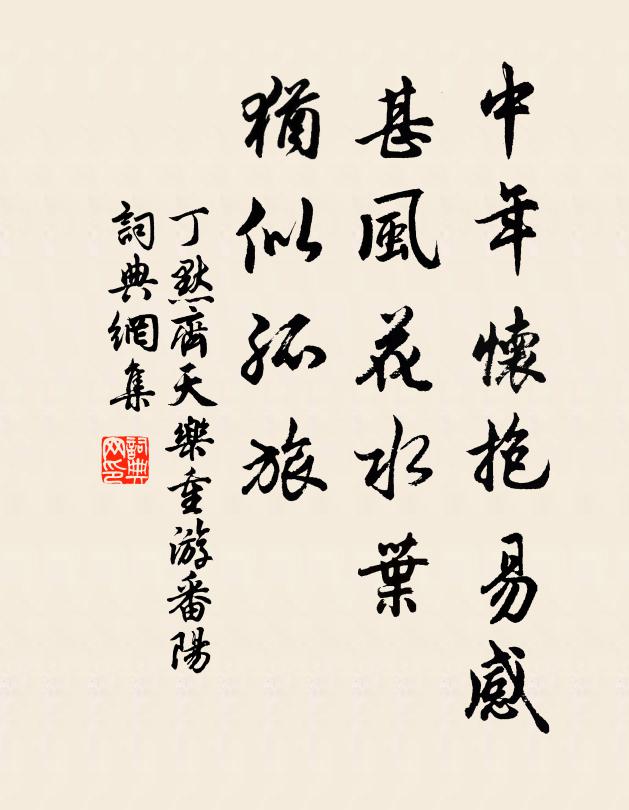 中年懷抱易感
甚風花水葉
猶似孤旅
丁默齊天樂重游番陽
詞典網集
詞典網印